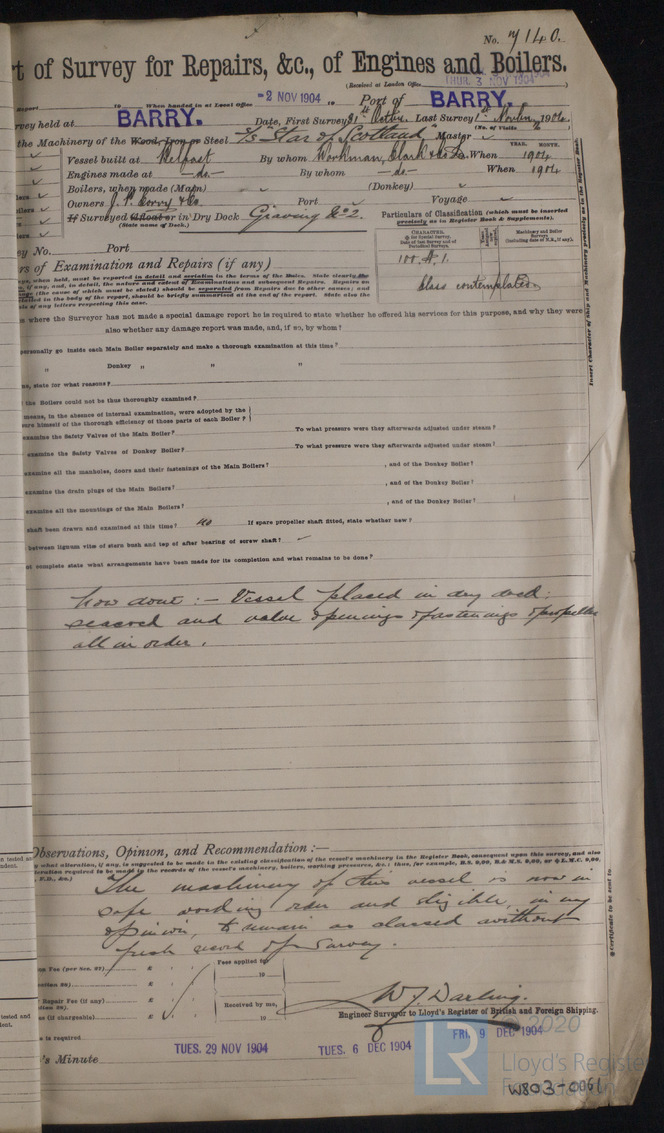 No. 7140.
rt of Survey for Repairs, &c., of Engines and Boilers.
(Received at London Office THUR. 3 NOV 1904
Report 19 When handed in at Local Office -2 NOV 1904 19 Port of BARRY.
rvey held at BARRY. Date, First Survey 31st Octbr. Last Survey 1st Novbr. 1904
(No. of Visits
the Machinery of the Wood, Iron or Steel "Star of Scotland" Master
YEAR. MONTH.
Vessel built at Belfast By whom Workman, Clark & Co Ld. When 1904
Engines made at —do.— By whom —do— When 1904
Boilers, when made (Main) (Donkey)
Owners J. P. Corry & Co. Port Voyage
If Surveyed Afloat or in Dry Dock Graving No 2.
(State name of Dock.)
Particulars of Classification (which must be inserted
precisely as in Register Book & Supplements).
CHARACTER.
Machinery and Boiler
Surveys
(including date of N.B., if any).
100 A. 1.
Class contemplated
Insert Character of Ship and Machinery precisely as in the Register Book.
ey No. Port
rs of Examination and Repairs (if any)
als of any letters respecting this case.
s where the Surveyor has not made a special damage report he is required to state whether he offered his services for this purpose, and why they were
also whether any damage report was made, and, if so, by whom?
personally go inside each Main Boiler separately and make a thorough examination at this time?
„ Donkey „ „ „
, state for what reasons?
the Boilers could not be thus thoroughly examined?
means, in the absence of internal examination, were adopted by the
ure himself of the thorough efficiency of those parts of each Boiler?
examine the Safety Valves of the Main Boiler? To what pressure were they afterwards adjusted under steam?
examine the Safety Valves of Donkey Boiler? To what pressure were they afterwards adjusted under steam?
examine all the manholes, doors and their fastenings of the Main Boilers? , and of the Donkey Boiler?
examine the drain plugs of the Main Boilers? , and of the Donkey Boiler?
examine all the mountings of the Main Boilers? , and of the Donkey Boiler?
shaft been drawn and examined at this time? no If spare propeller shaft fitted, state whether new?
between lignum vitæ of stern bush and top of after bearing of screw shaft?
ot complete state what arrangements have been made for its completion and what remains to be done?
now done :— Vessel placed in dry dock:
seacock and valve openings & fastenings & propeller
all in order.
Observations, Opinion, and Recommendation :—
The machinery of this vessel is now in
safe working order and eligible, in my
opinion, to remain as classed without
fresh record of Survey.
Fee (per Sec. 27) £
Fees applied for
19
Repair Fee (if any) £
Received by me,
(if chargeable) £
19
W J Darling.
Engineer Surveyor to Lloyd's Register of British and Foreign Shipping.
e is required
's Minute
TUES. 29 NOV 1904
TUES. 6 DEC 1904
FRI. 9 DEC 1904
Certificate to be sent to
LR
© 2020
Lloyd's Register
Foundation
W803-0061